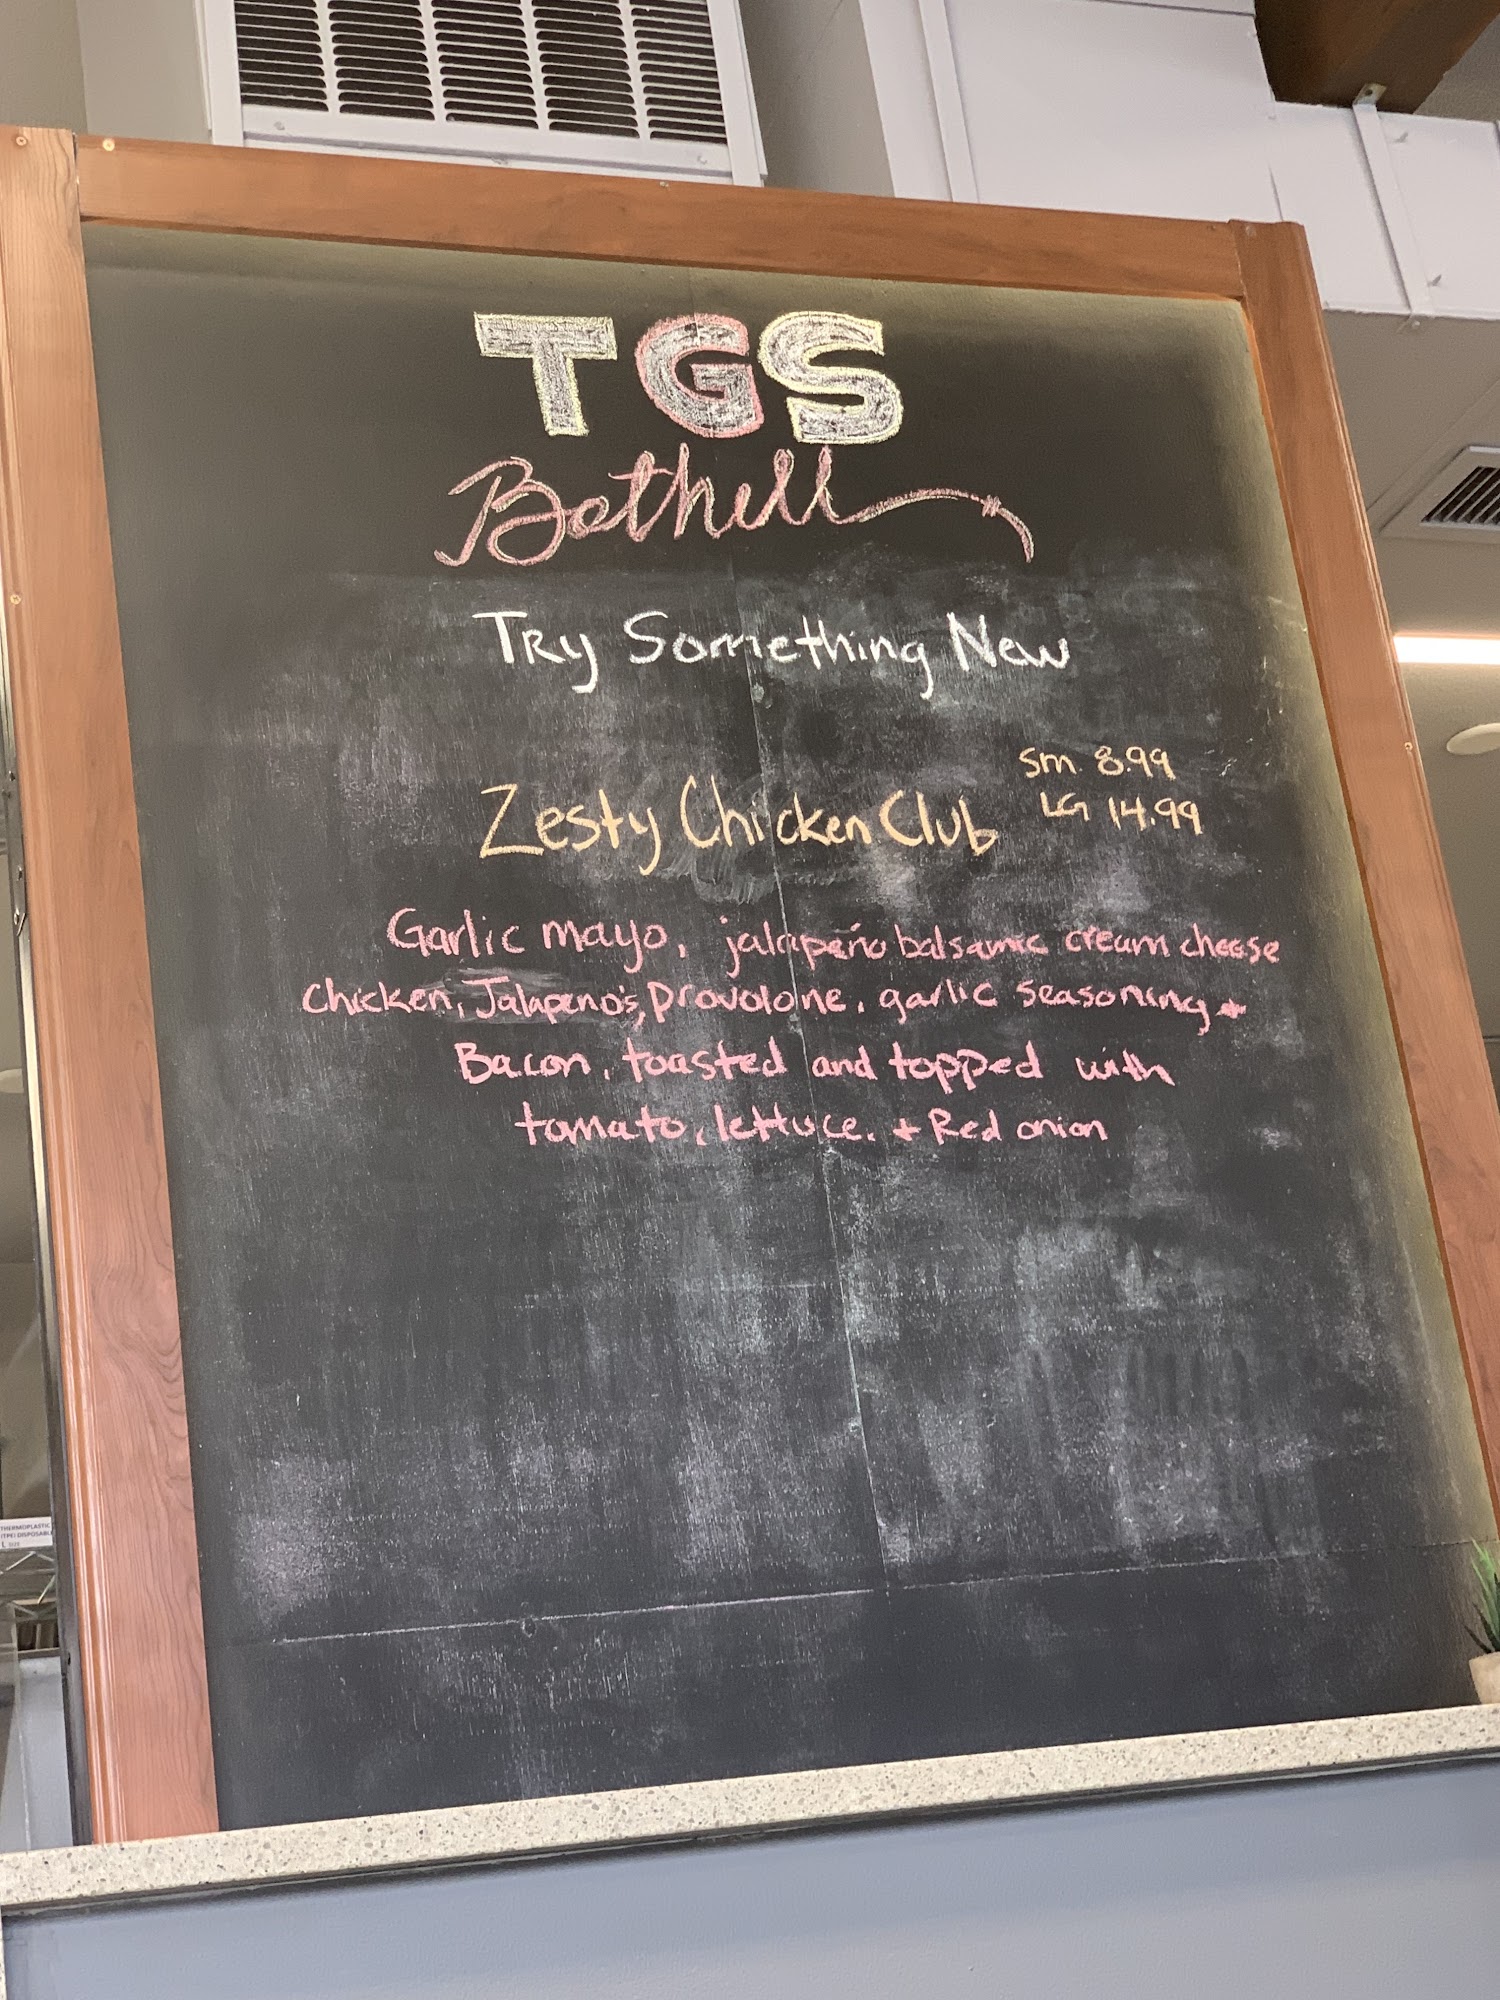 TGS
Bothell
Try Something New
Sm. 8.99
Zesty Chicken Club
LG 14.99
Garlic mayo, jalapeño balsamic cream cheese
Chicken, Jalapeno's, provolone, garlic seasoning +
Bacon, toasted and topped with
tomato, lettuce, + Red onion
THERMOPLASTIC
(TPE) DISPOSABL
L SIZE